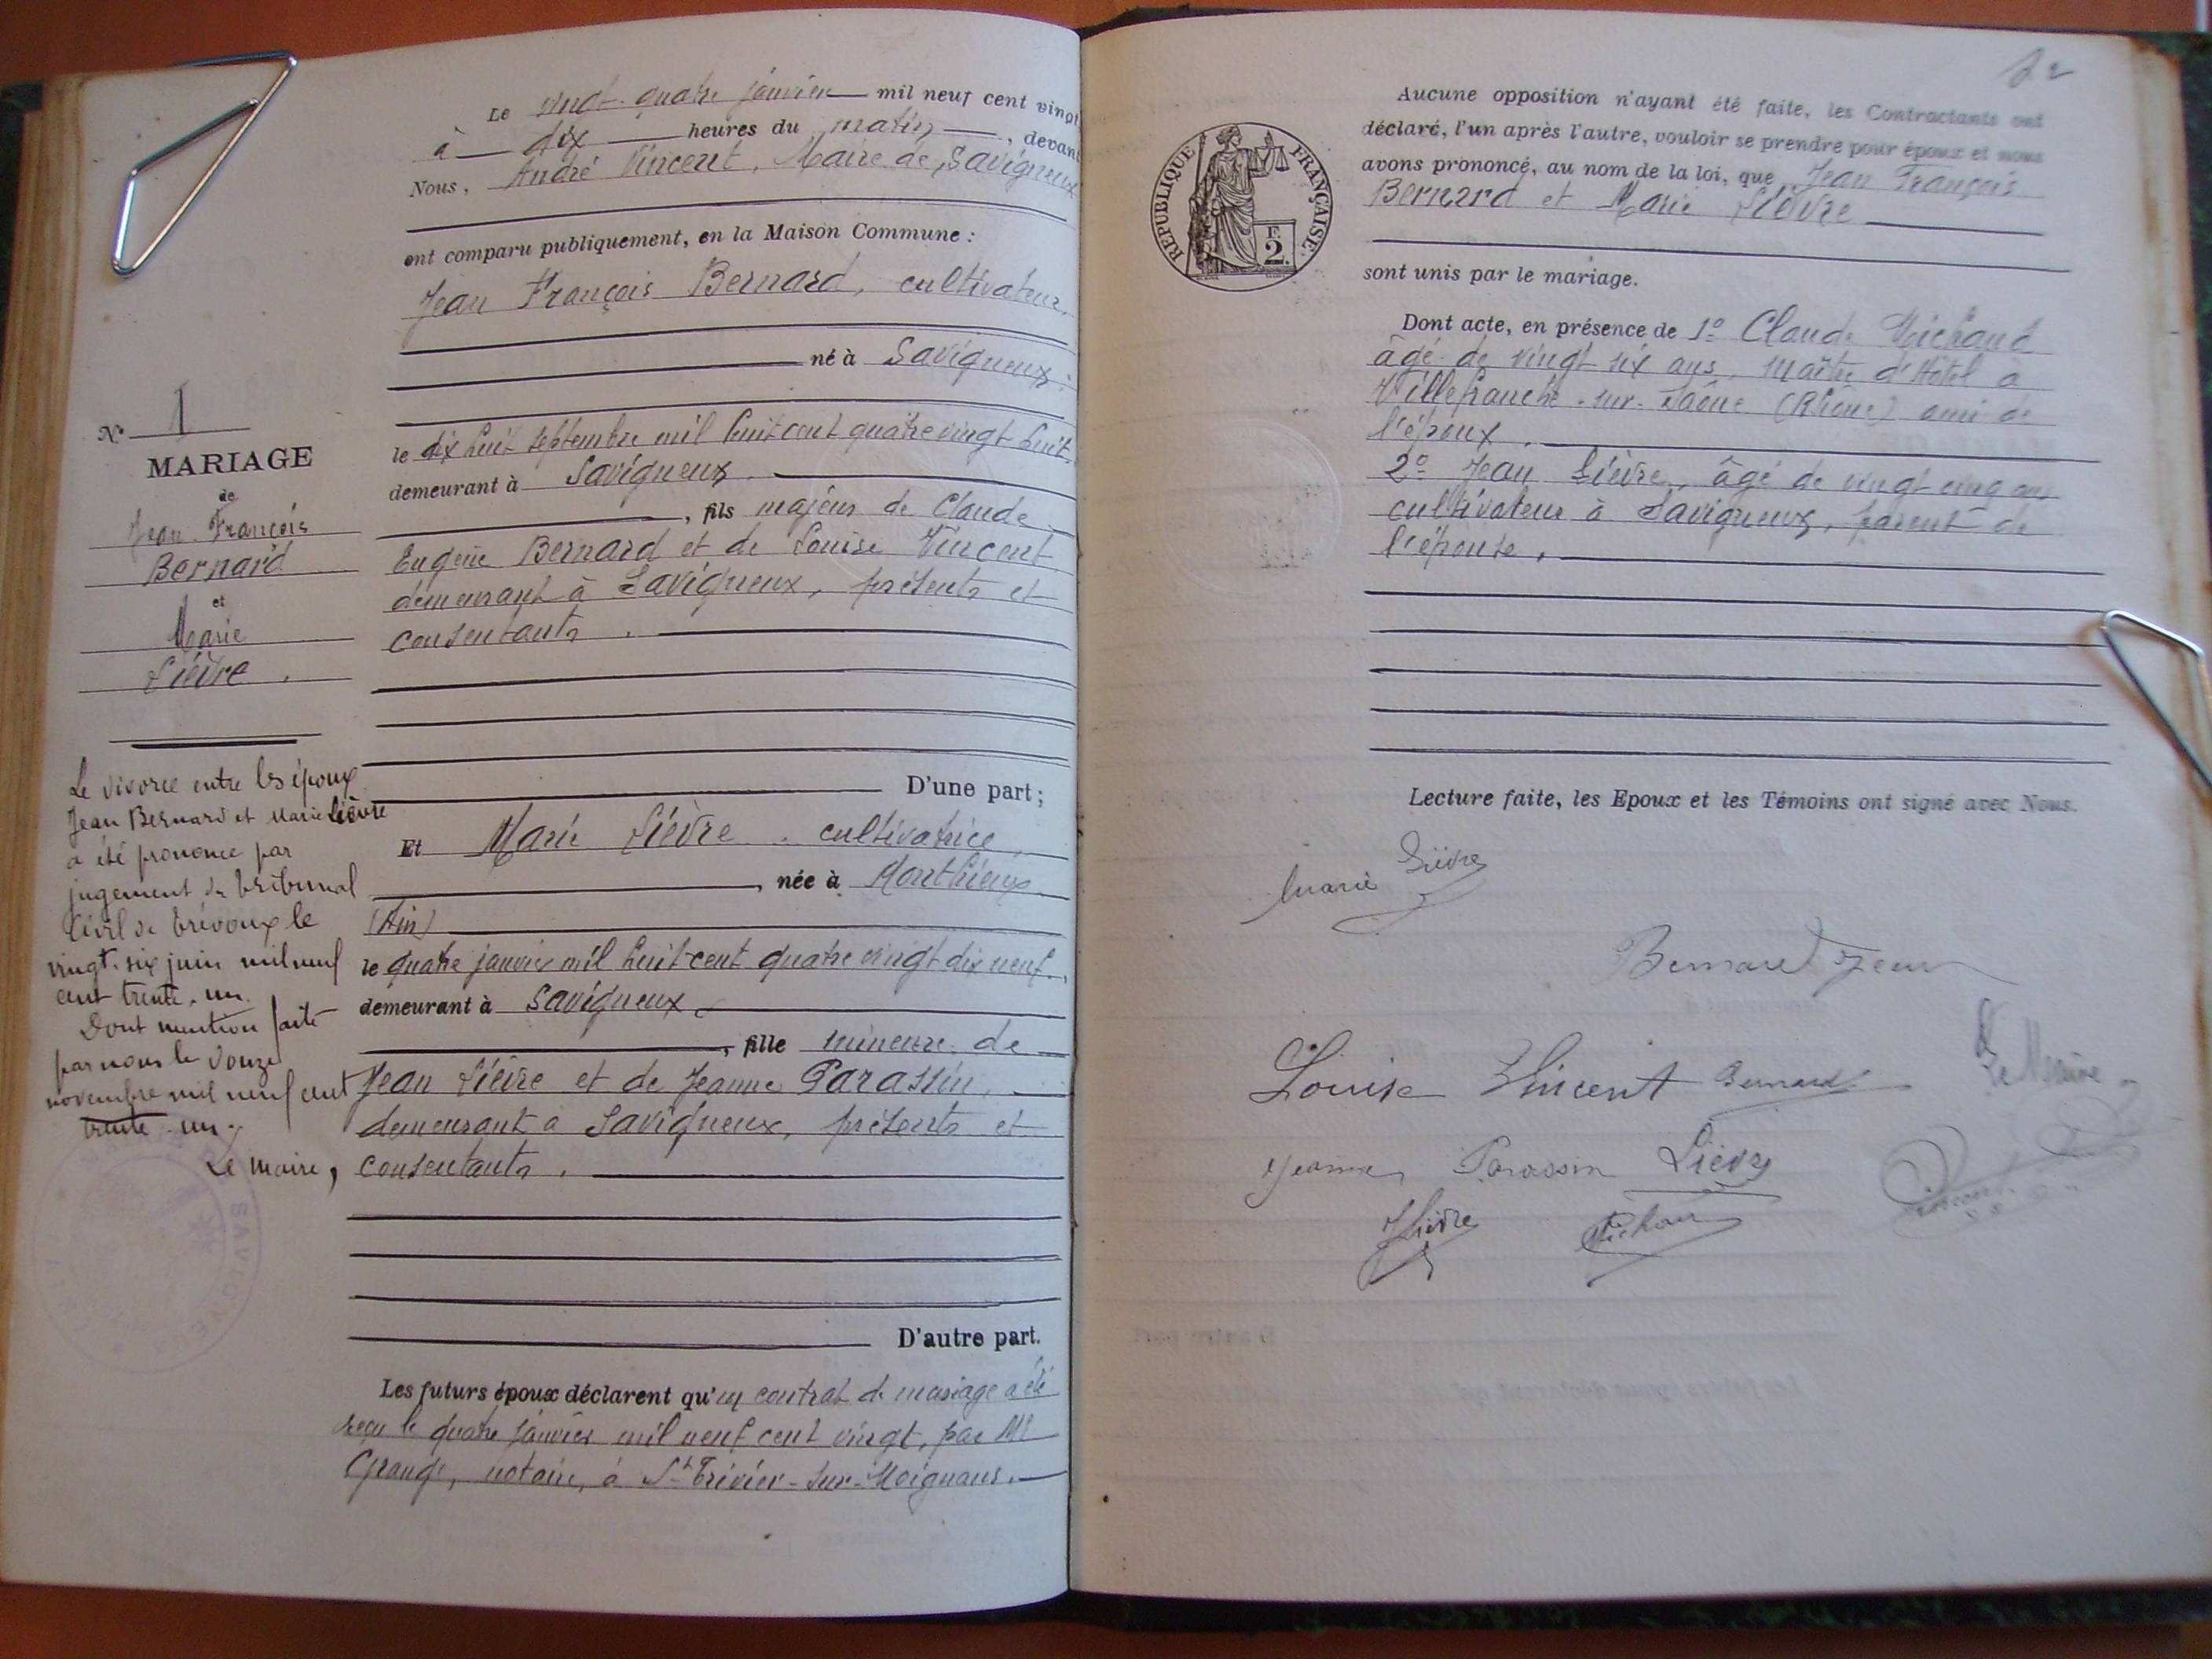 N° 1
MARIAGE
de
Jean François
Bernard
et
Marie
Lièvre.
Le divorce entre les époux
Jean Bernard et Marie Lièvre
a été prononcé par
jugement du tribunal
Civil de Trévoux le
vingt-six juin mil neuf
cent trente-un.
Dont mention faite
par nous le douze
novembre mil neuf cent
trente-un.
Le maire,
SAVIGNEUX
Le vingt-quatre janvier mil neuf cent vingt
à dix heures du matin, devant
Nous, André Vincent, Maire de Savigneux
ont comparu publiquement, en la Maison Commune :
Jean François Bernard, cultivateur,
né à Savigneux
le dix huit septembre mil huit cent quatre vingt huit.
demeurant à Savigneux.
, fils majeur de Claude
Eugène Bernard et de Louise Vincent
demeurant à Savigneux, présents et
consentants.
D'une part ;
Et Marie Lièvre. cultivatrice,
, née à Monthieux
(Ain)
le quatre janvier mil huit cent quatre vingt dix neuf.,
demeurant à Savigneux
, fille mineure de
Jean Lièvre et de Jeanne Parassin,
demeurant à Savigneux, présents et
consentants.
D'autre part.
Les futurs époux déclarent qu'un contrat de mariage a été
reçu le quatre janvier mil neuf cent vingt, par Me
Grange, notaire, à St Trivier-sur-Moignans.
RÉPUBLIQUE FRANÇAISE
F.
2.
Aucune opposition n'ayant été faite, les Contractants ont
déclaré, l'un après l'autre, vouloir se prendre pour époux et nous
avons prononcé, au nom de la loi, que Jean François
Bernard et Marie Lièvre
sont unis par le mariage.
Dont acte, en présence de 1° Claude Michaud
âgé de vingt six ans, maître d'Hôtel à
Villefranche-sur-Saône (Rhône) ami de
l'époux.
2° Jean Lièvre, âgé de vingt cinq ans
cultivateur à Savigneux, parent de
l'épouse.
Lecture faite, les Epoux et les Témoins ont signé avec Nous.
Marie Lièvre
Bernard Jean
Louise Vincent Bernard
Le Maire
Jeanne Parassin Lièvre
Vincent
J Lièvre